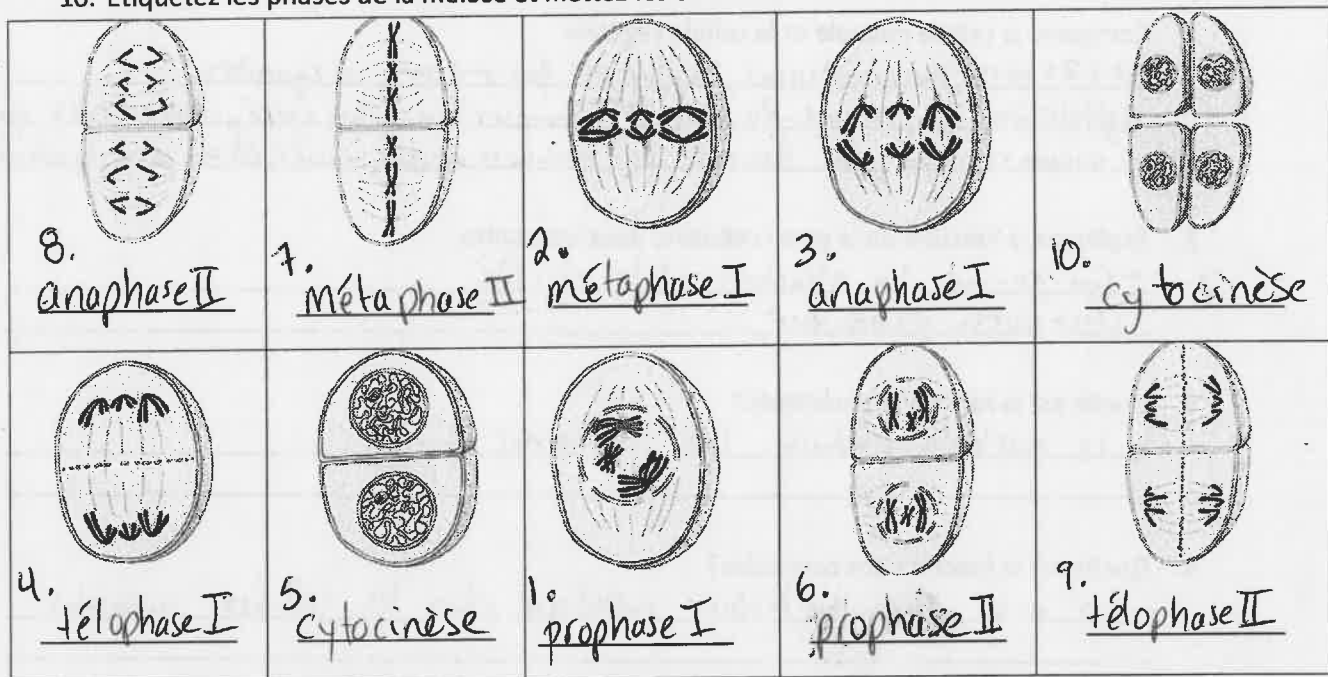 10. Étiquetez les phases de la méiose et mettez les
8.
anaphase II
7.
métaphase II
2.
métaphase I
3.
anaphase I
10.
cytocinèse
4.
télophase I
5.
cytocinèse
1.
prophase I
6.
prophase II
9.
télophase II